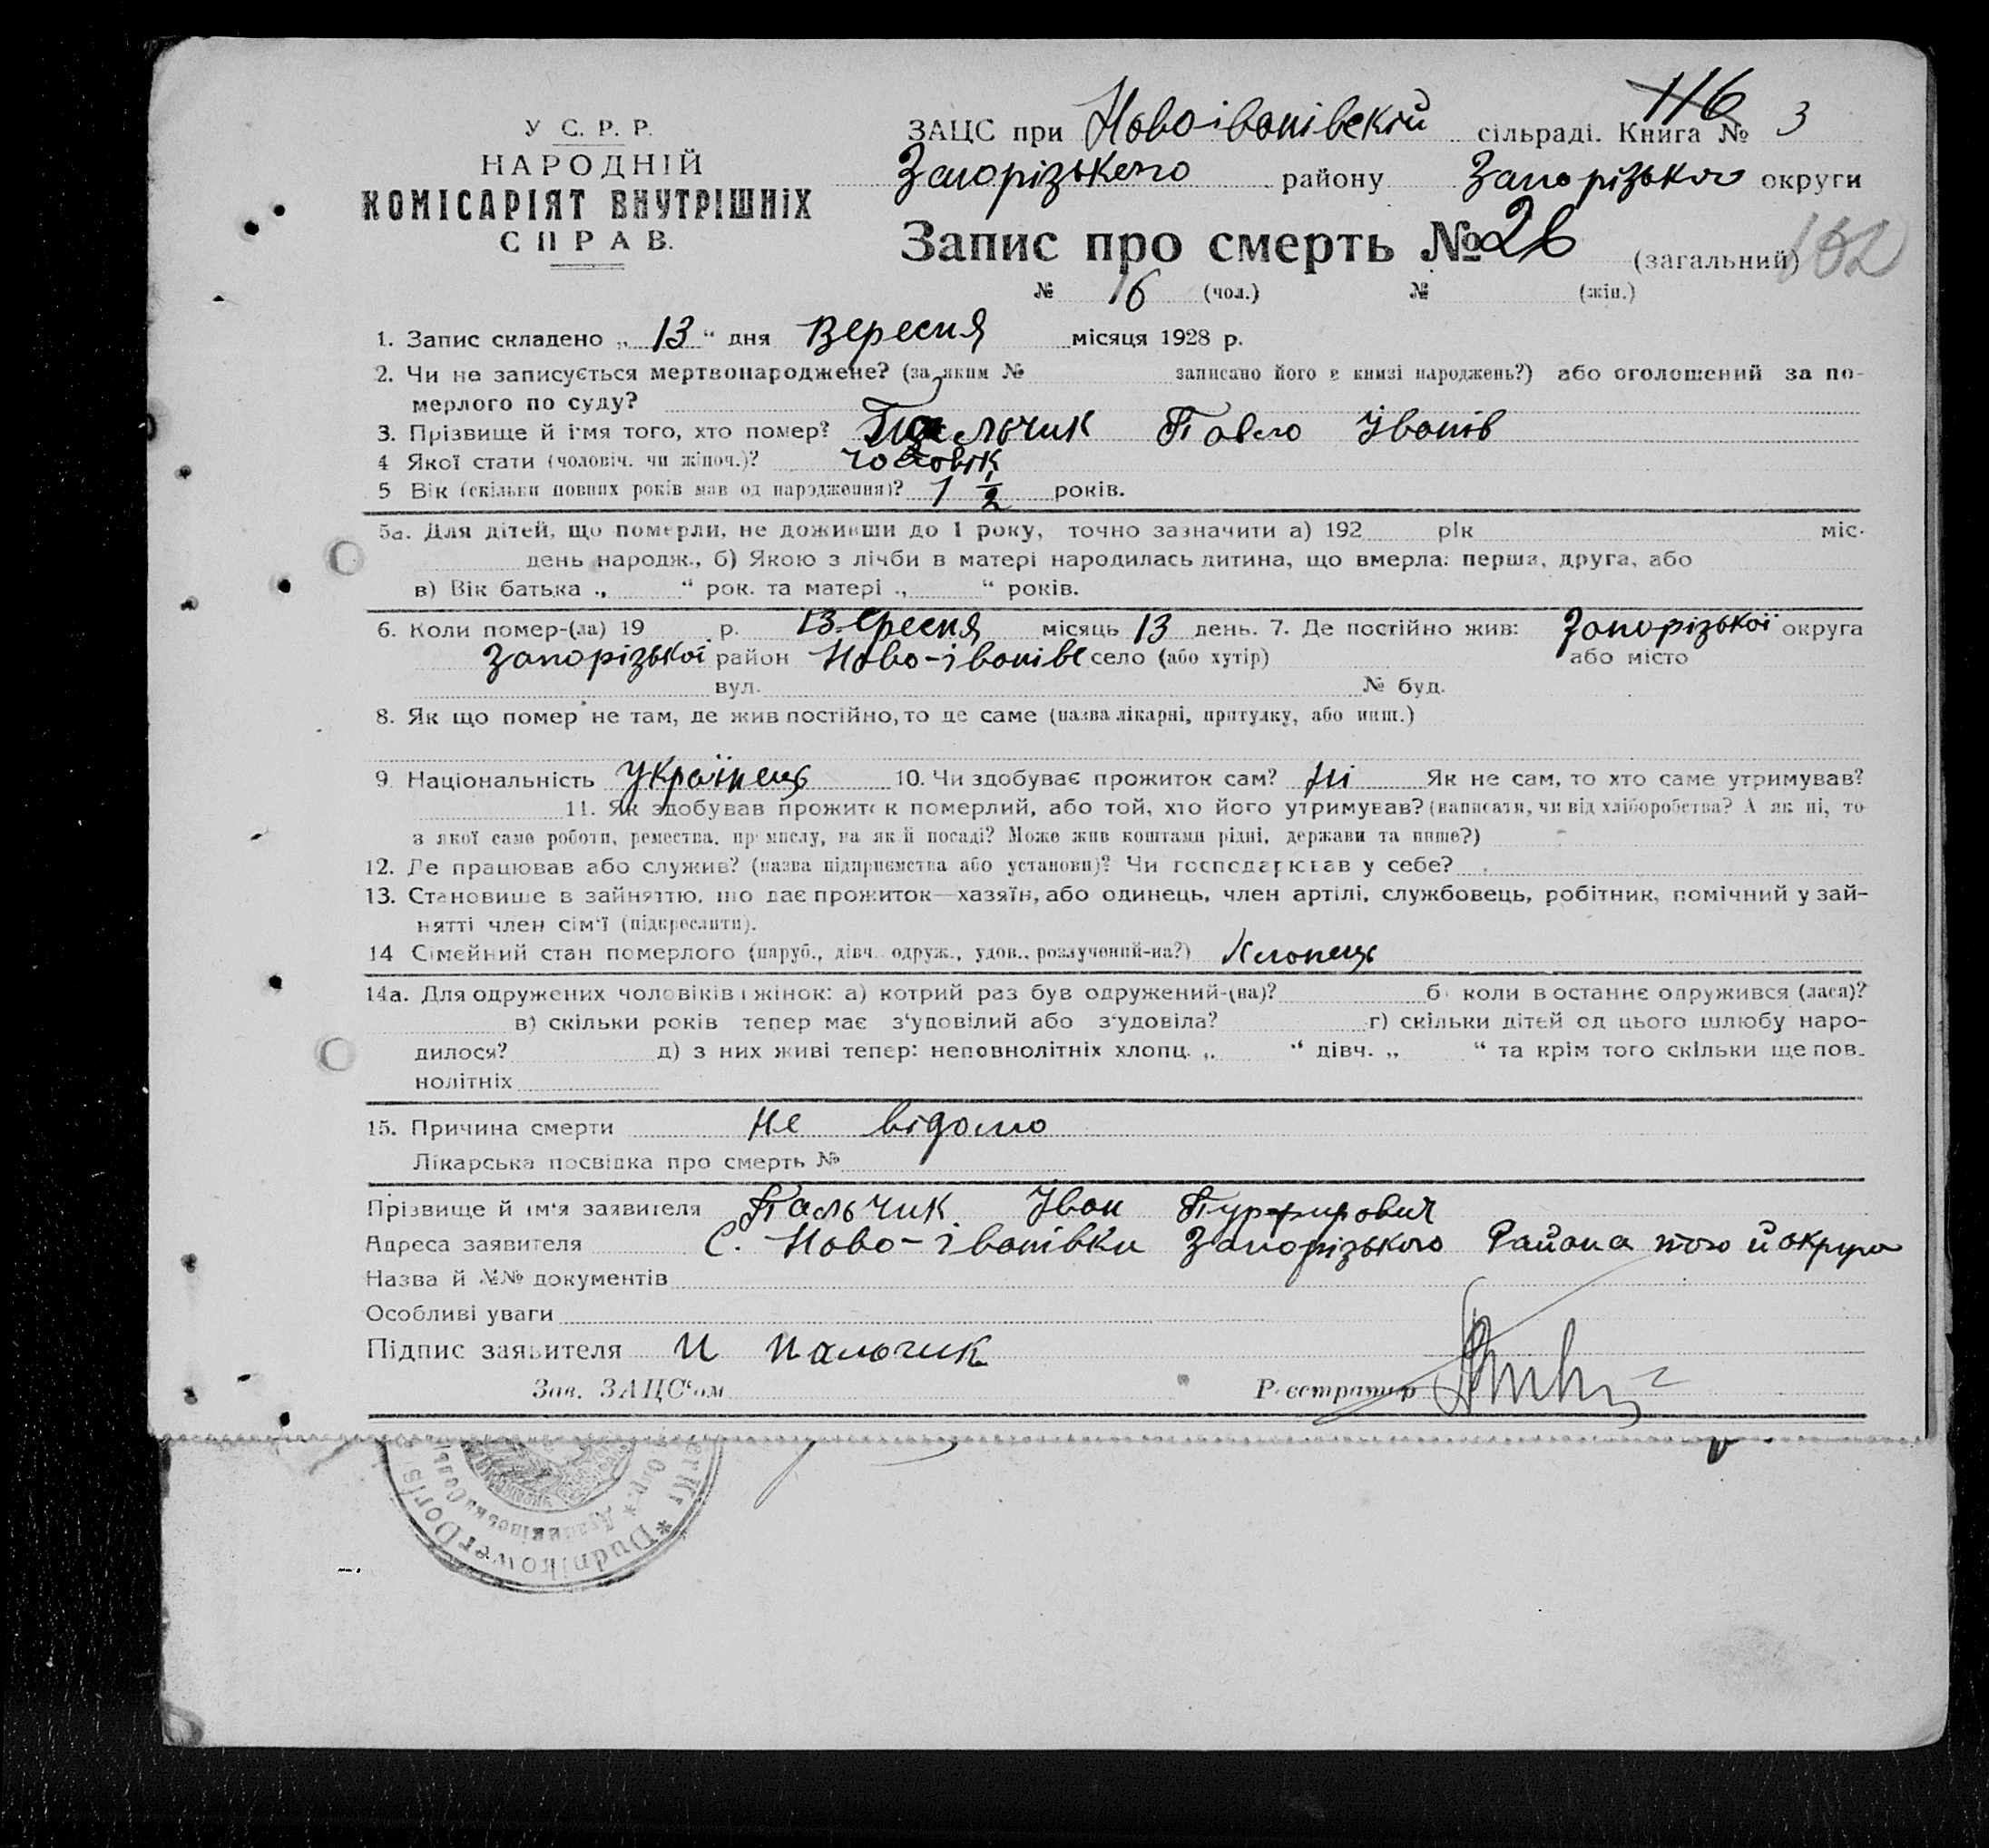 116
У С. Р. Р.
НАРОДНІЙ
КОМІСАРІЯТ ВНУТРІШНІХ
СПРАВ.
ЗАЦС при Новоіванівскій сільраді. Книга № 3
Запорізького району Запорізького округи
Запис про смерть № 26 (загальний) 162
№ 16 (чол.) № (жін.)
1. Запис складено „ 13 “ дня Вересня місяця 1928 р.
2. Чи не записується мертвонароджене? (за яким № записано його в книзі народжень?) або оголошений за по-
мерлого по суду?
3. Прізвище й імя того, хто помер? Пальчик Павло Іванів
4 Якої стати (чоловіч. чи жіноч.)? чоловік
5 Вік (скільки повних років мав од народження)? 1 1/2 років.
5а. Для дітей, що померли, не доживши до 1 року, точно зазначити а) 192 рік міс.
день народж., б) Якою з лічби в матері народилась дитина, що вмерла: перша, друга, або
в) Вік батька „ “ рок. та матері „ “ років.
6. Коли помер-(ла) 19 р. Вересня місяць 13 день. 7. Де постійно жив: Запорізької округа
Запорізької район Ново-іванівк село (або хутір) або місто
вул. № буд.
8. Як що помер не там, де жив постійно, то де саме (назва лікарні, притулку, або инш.)
9. Національність Українець 10. Чи здобуває прожиток сам? ні Як не сам, то хто саме утримував?
11. Як здобував прожиток померлий, або той, хто його утримував? (написати, чи від хліборобства? А як ні, то
з якої саме роботи, ремества, промислу, на якій посаді? Може жив коштами рідні, держави та инше?)
12. Де працював або служив? (назва підприємства або установи)? Чи господарював у себе?
13. Становище в зайняттю, що дає прожиток—хазяїн, або одинець, член артілі, службовець, робітник, помічний у зай-
нятті член сім'ї (підкреслити).
14 Сімейний стан померлого (паруб., дівч. одруж., удов., розлучений-на?) Хлопець
14а. Для одружених чоловіків і жінок: а) котрий раз був одружений-(на)? б) коли востаннє одружився (лася)?
в) скільки років тепер має з'удовілий або з'удовіла? г) скільки дітей од цього шлюбу наро-
дилося? д) з них живі тепер: неповнолітніх хлопц. „ “ дівч. „ “ та крім того скільки ще пов-
нолітніх
15. Причина смерти не відомо
Лікарська посвідка про смерть №
Прізвище й ім'я заявителя Пальчик Іван Пурфирович
Адреса заявителя С. Ново-іванівки Запорізького Района того й округа
Назва й №№ документів
Особливі уваги
Підпис заявителя И Пальчик
Зав. ЗАЦС'ом Реєстратор
* Dudnikower Dorfs